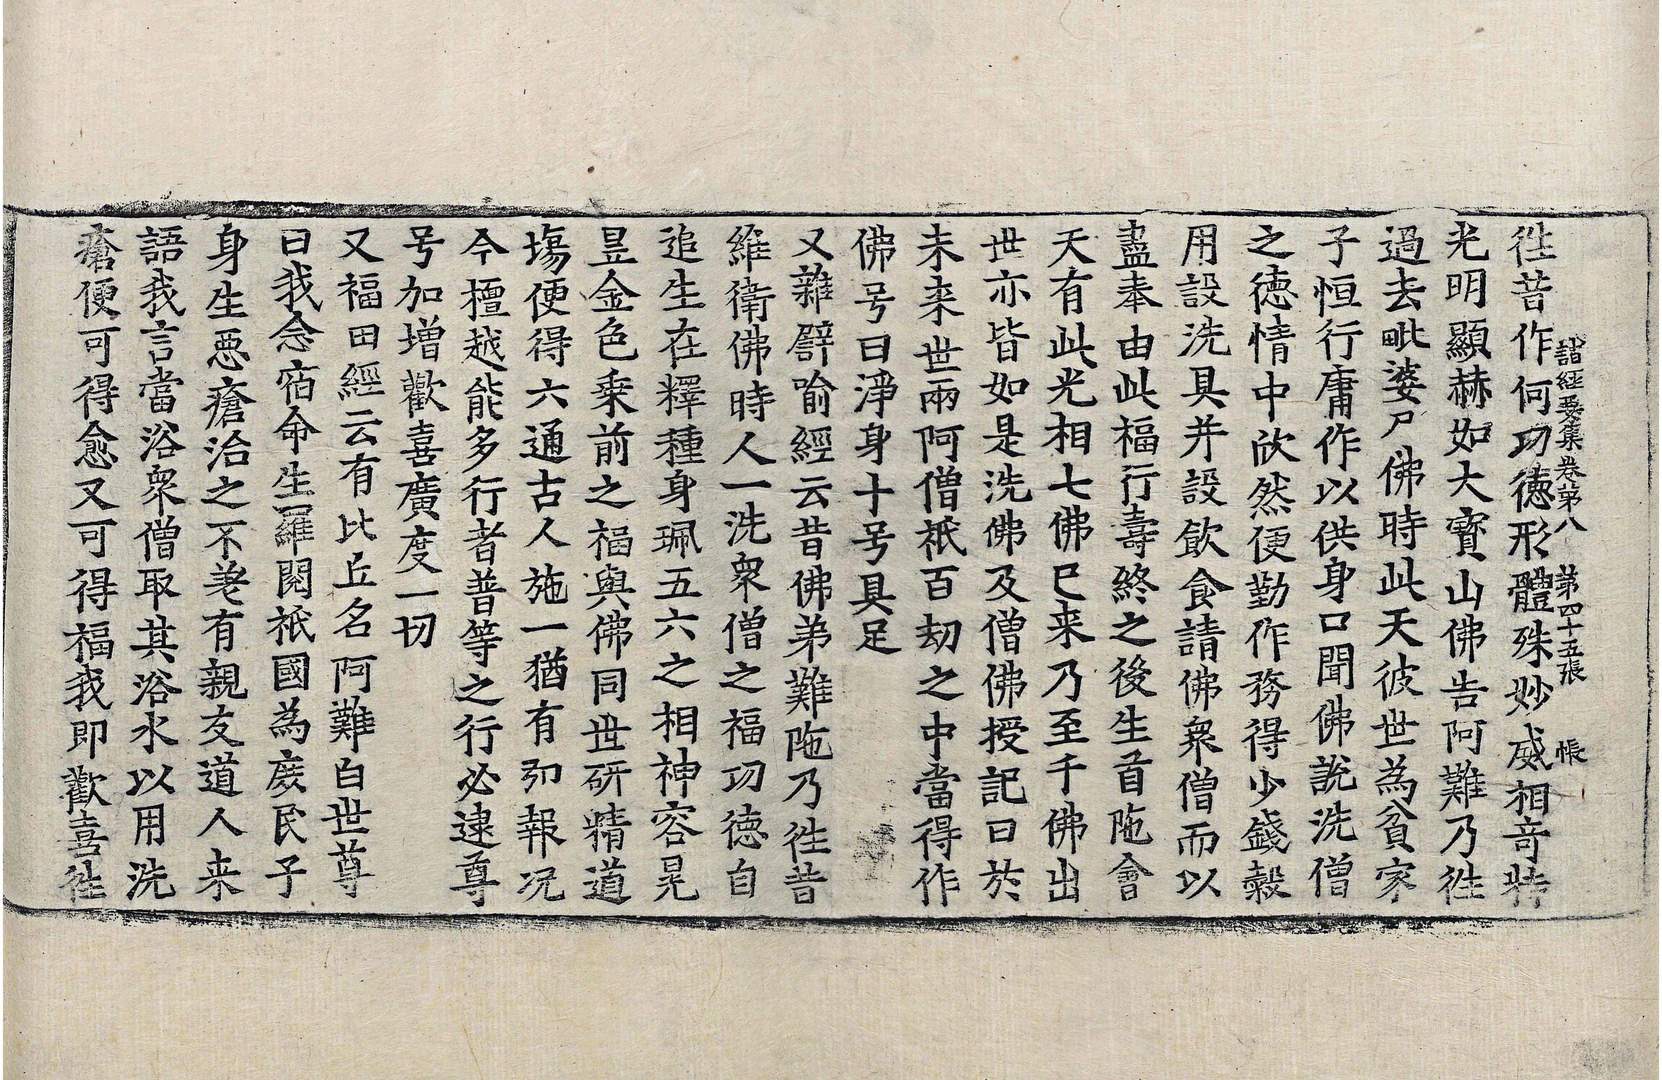 諸經要集卷第八 第四十五張 帳
徃昔作何功徳形體殊妙威相奇特
光明顯赫如大寳山佛告阿難乃徃
過去毗婆尸佛時此天彼世為貧家
子恒行庸作以供身口聞佛說洗僧
之徳情中欣然便勤作務得少錢穀
用設洗具并設飲食請佛衆僧而以
盡奉由此福行壽終之後生首陁會
天有此光相七佛已来乃至千佛出
世亦皆如是洗佛及僧佛授記曰於
未来世兩阿僧祇百劫之中當得作
佛号曰淨身十号具足
又雜譬喻經云昔佛弟難陁乃徃昔
維衛佛時人一洗衆僧之福功徳自
追生在釋種身珮五六之相神容晃
昱金色乗前之福與佛同世研精道
塲便得六通古人施一猶有弘報况
今檀越能多行者普等之行必逮尊
号加增歡喜廣度一切
又福田經云有比丘名阿難白世尊
曰我念宿命生羅閱祇國為庶民子
身生惡瘡治之不差有親友道人来
語我言當浴衆僧取其浴水以用洗
瘡便可得愈又可得福我即歡喜徃